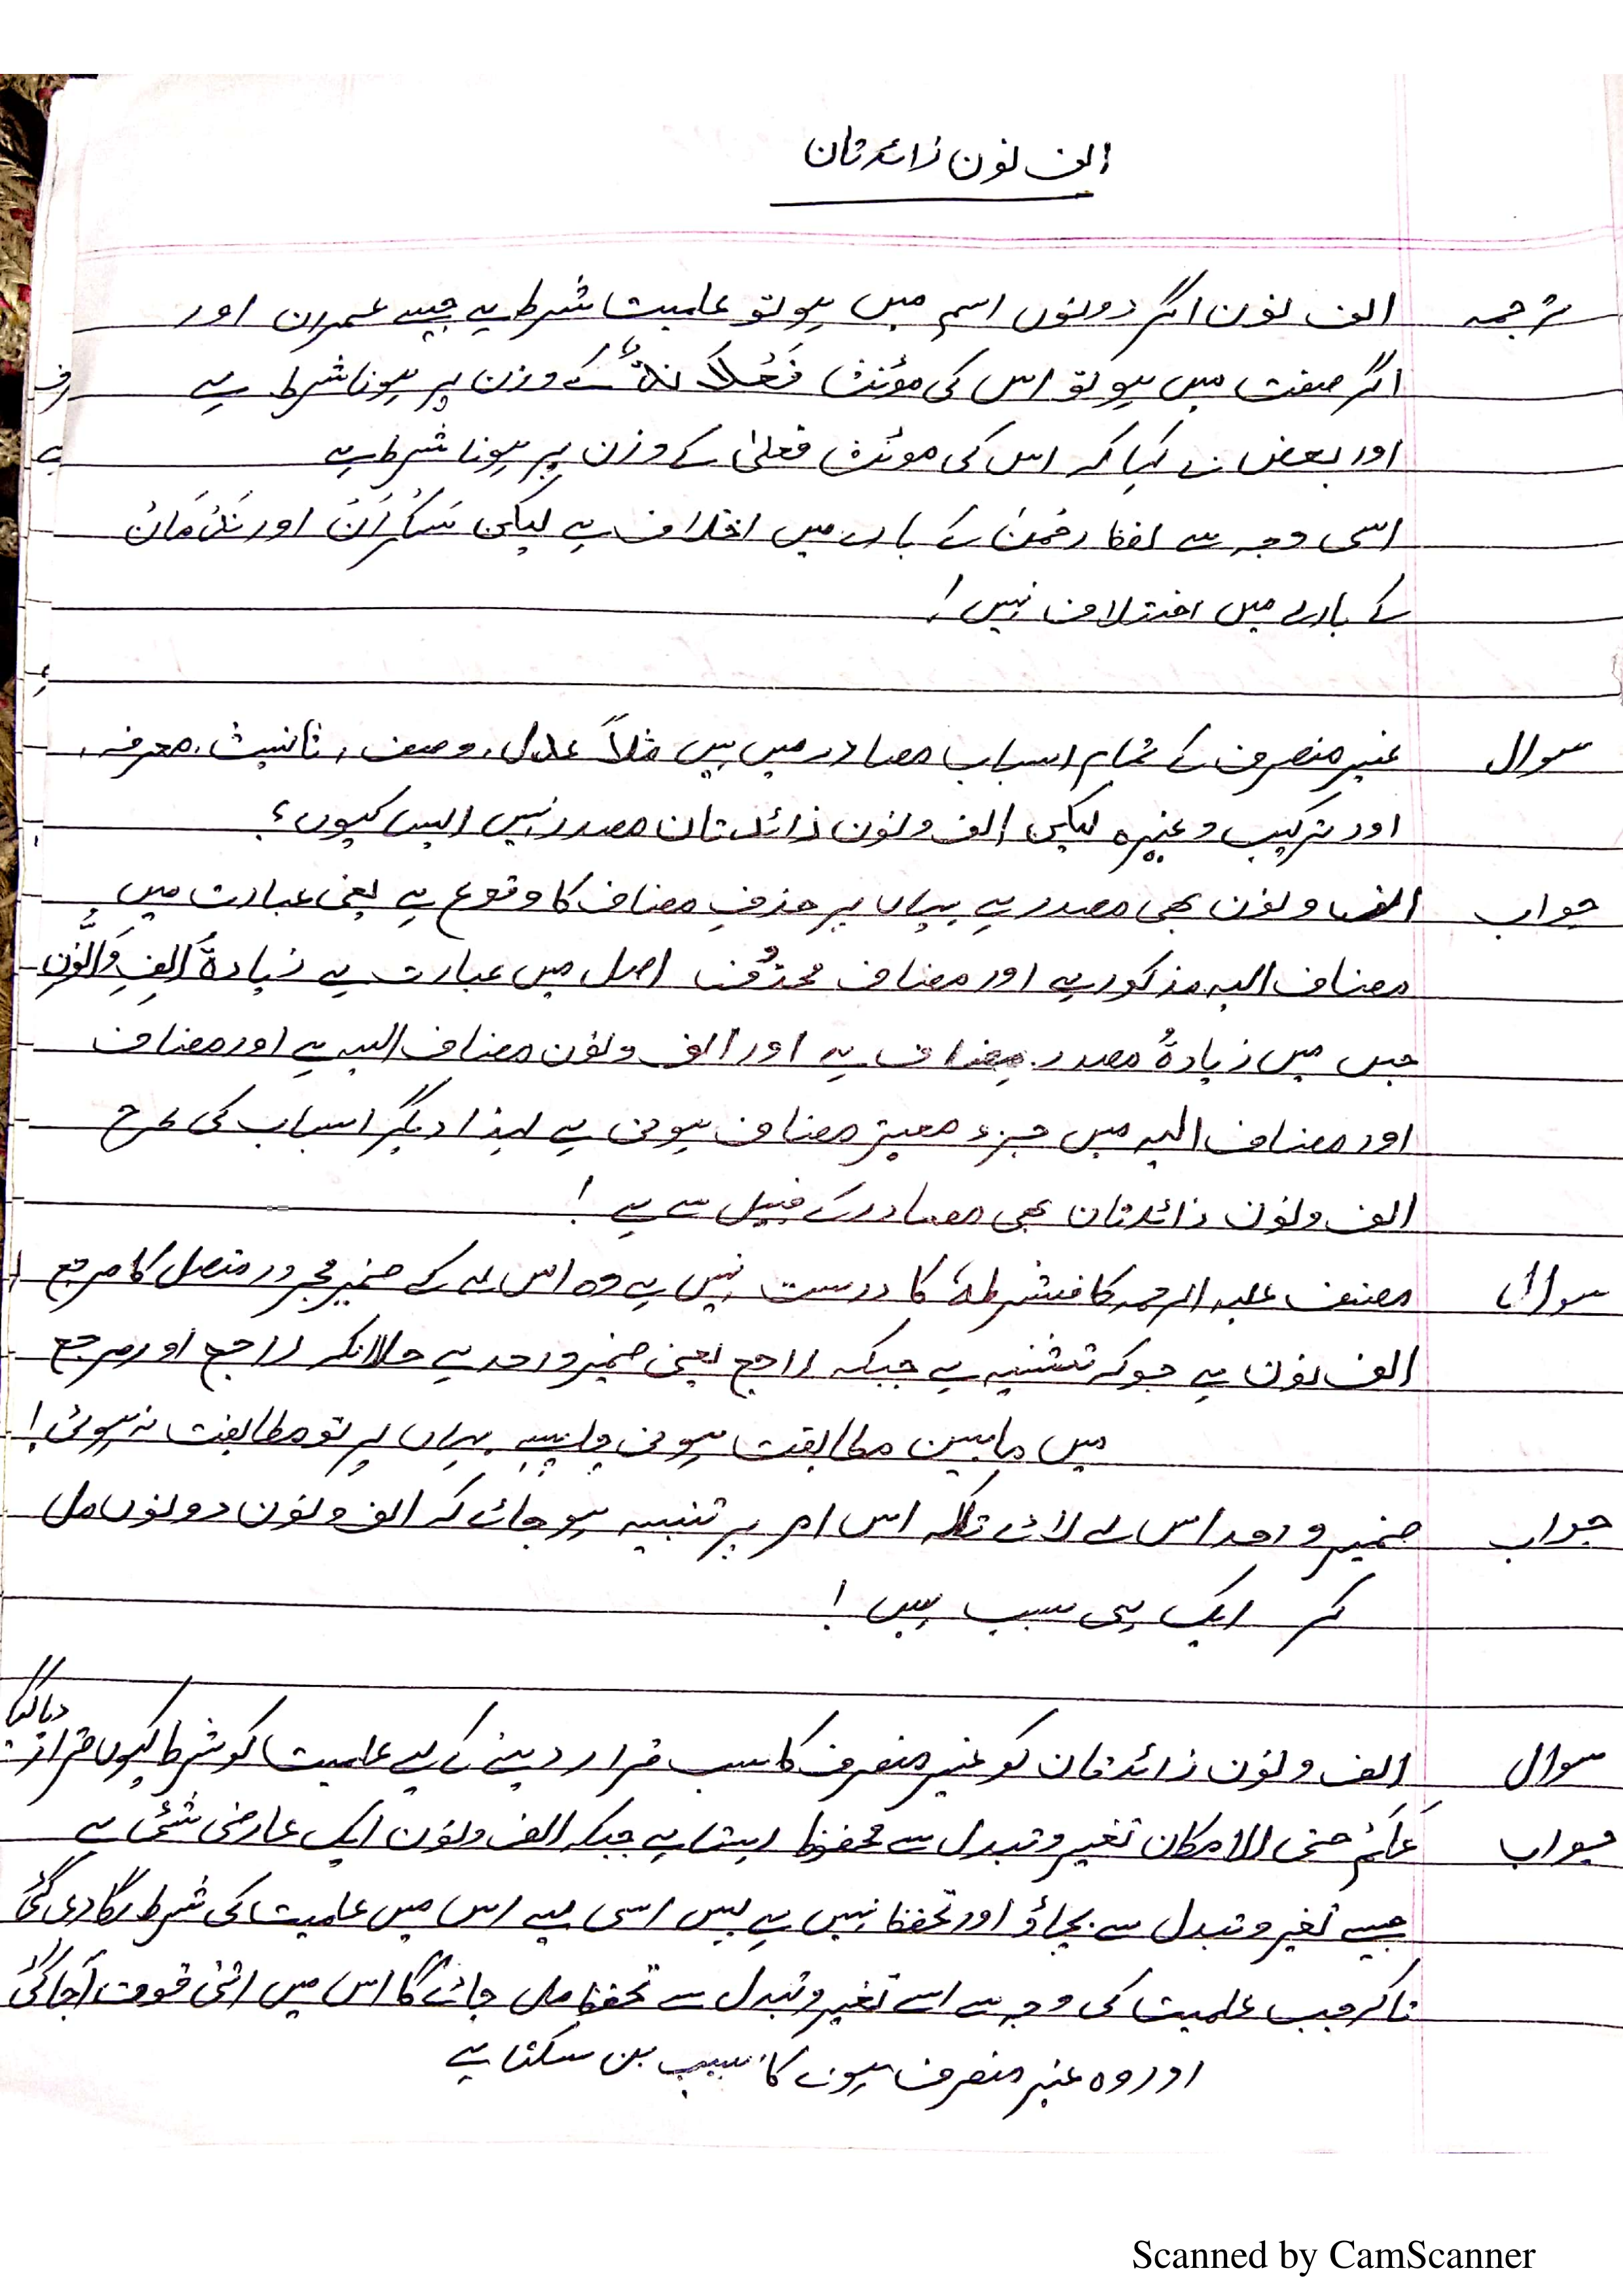 الف نون زائدتان
ترجمہ الف نون اگر دونوں اسم میں ہو تو علمیت شرط ہے جیسے عمران اور
اگر صفت میں ہو تو اس کی مؤنث فَعْلَانَۃٌ کے وزن پر ہونا شرط ہے
اور بعض نے کہا کہ اس کی مونث فعلیٰ کے وزن پر ہونا شرط ہے
اسی وجہ سے لفظ رحمٰن کے بارے میں اخلاف ہے لیکن سَکْرَانَ اور نَدْمَانَ
کے بارے میں اختلاف نہیں!
سوال غیر منصرف کے تمام اسباب مصادر میں ہیں مثلاً عدل، وصف، تانیث، معرفہ،
اور ترکیب وغیرہ لیکن الف و نون زائدتان مصدر نہیں ایسا کیوں؟
جواب الف و نون بھی مصدر ہے یہاں پر حذفِ مضاف کا وقوع ہے یعنی عبارت میں
مضاف الیہ مذکور ہے اور مضاف محذوف اصل میں عبارت ہے زیادۃُ الِفِ وَالنُّوْنِ
جس میں زیادۃُ مصدر مضاف ہے اور الف و نون مضاف الیہ ہے اور مضاف
اور مضاف الیہ میں جزء معیتر مضاف ہوتی ہے لہذا دیگر اسباب کی طرح
الف و نون زائدتان بھی مصادر کے قبیل سے ہے!
سوال مصنف علیہ الرحمہ کا فشرطہٗ کا درست نہیں ہے وہ اس لیے کے ضمیر مجرور متصل کا مرجع
الف نون ہے جو کہ تثنیہ ہے جبکہ راجع یعنی ضمیر واحد ہے حلانکہ راجع اور مرجع
میں مابین مطابقت ہونی چاہیے یہاں پر تو مطابقت نہ ہوئی!
جواب ضمیر واحد اس لے لائے تاکہ اس امر پر تنبیہ ہو جائے کہ الف و نون دونوں مل
کر ایک ہی سبب ہیں!
سوال الف و نون زائدتان کو غیر منصرف کا سبب قرار دینے کے لیے علمیت کو شرط کیوں قرار دیا گیا
جواب عَلَمْ حتی الامکان تغیر و تبدل سے محفوظ رہتا ہے جبکہ الف و نون ایک عارضی شئی ہے
جسے تغیر و تبدل سے بچاؤ اور تحفظ نہیں ہے پس اسی لیے اس میں علمیت کی شرط لگا دی گئی
تاکہ جب علمیت کی وجہ سے اسے تغیر و تبدل سے تحفظ مل جائے گا اس میں اتنی قوت آ جا گئی
اور وہ غیر منصرف ہونے کا سبب بن سکتا ہے
Scanned by CamScanner